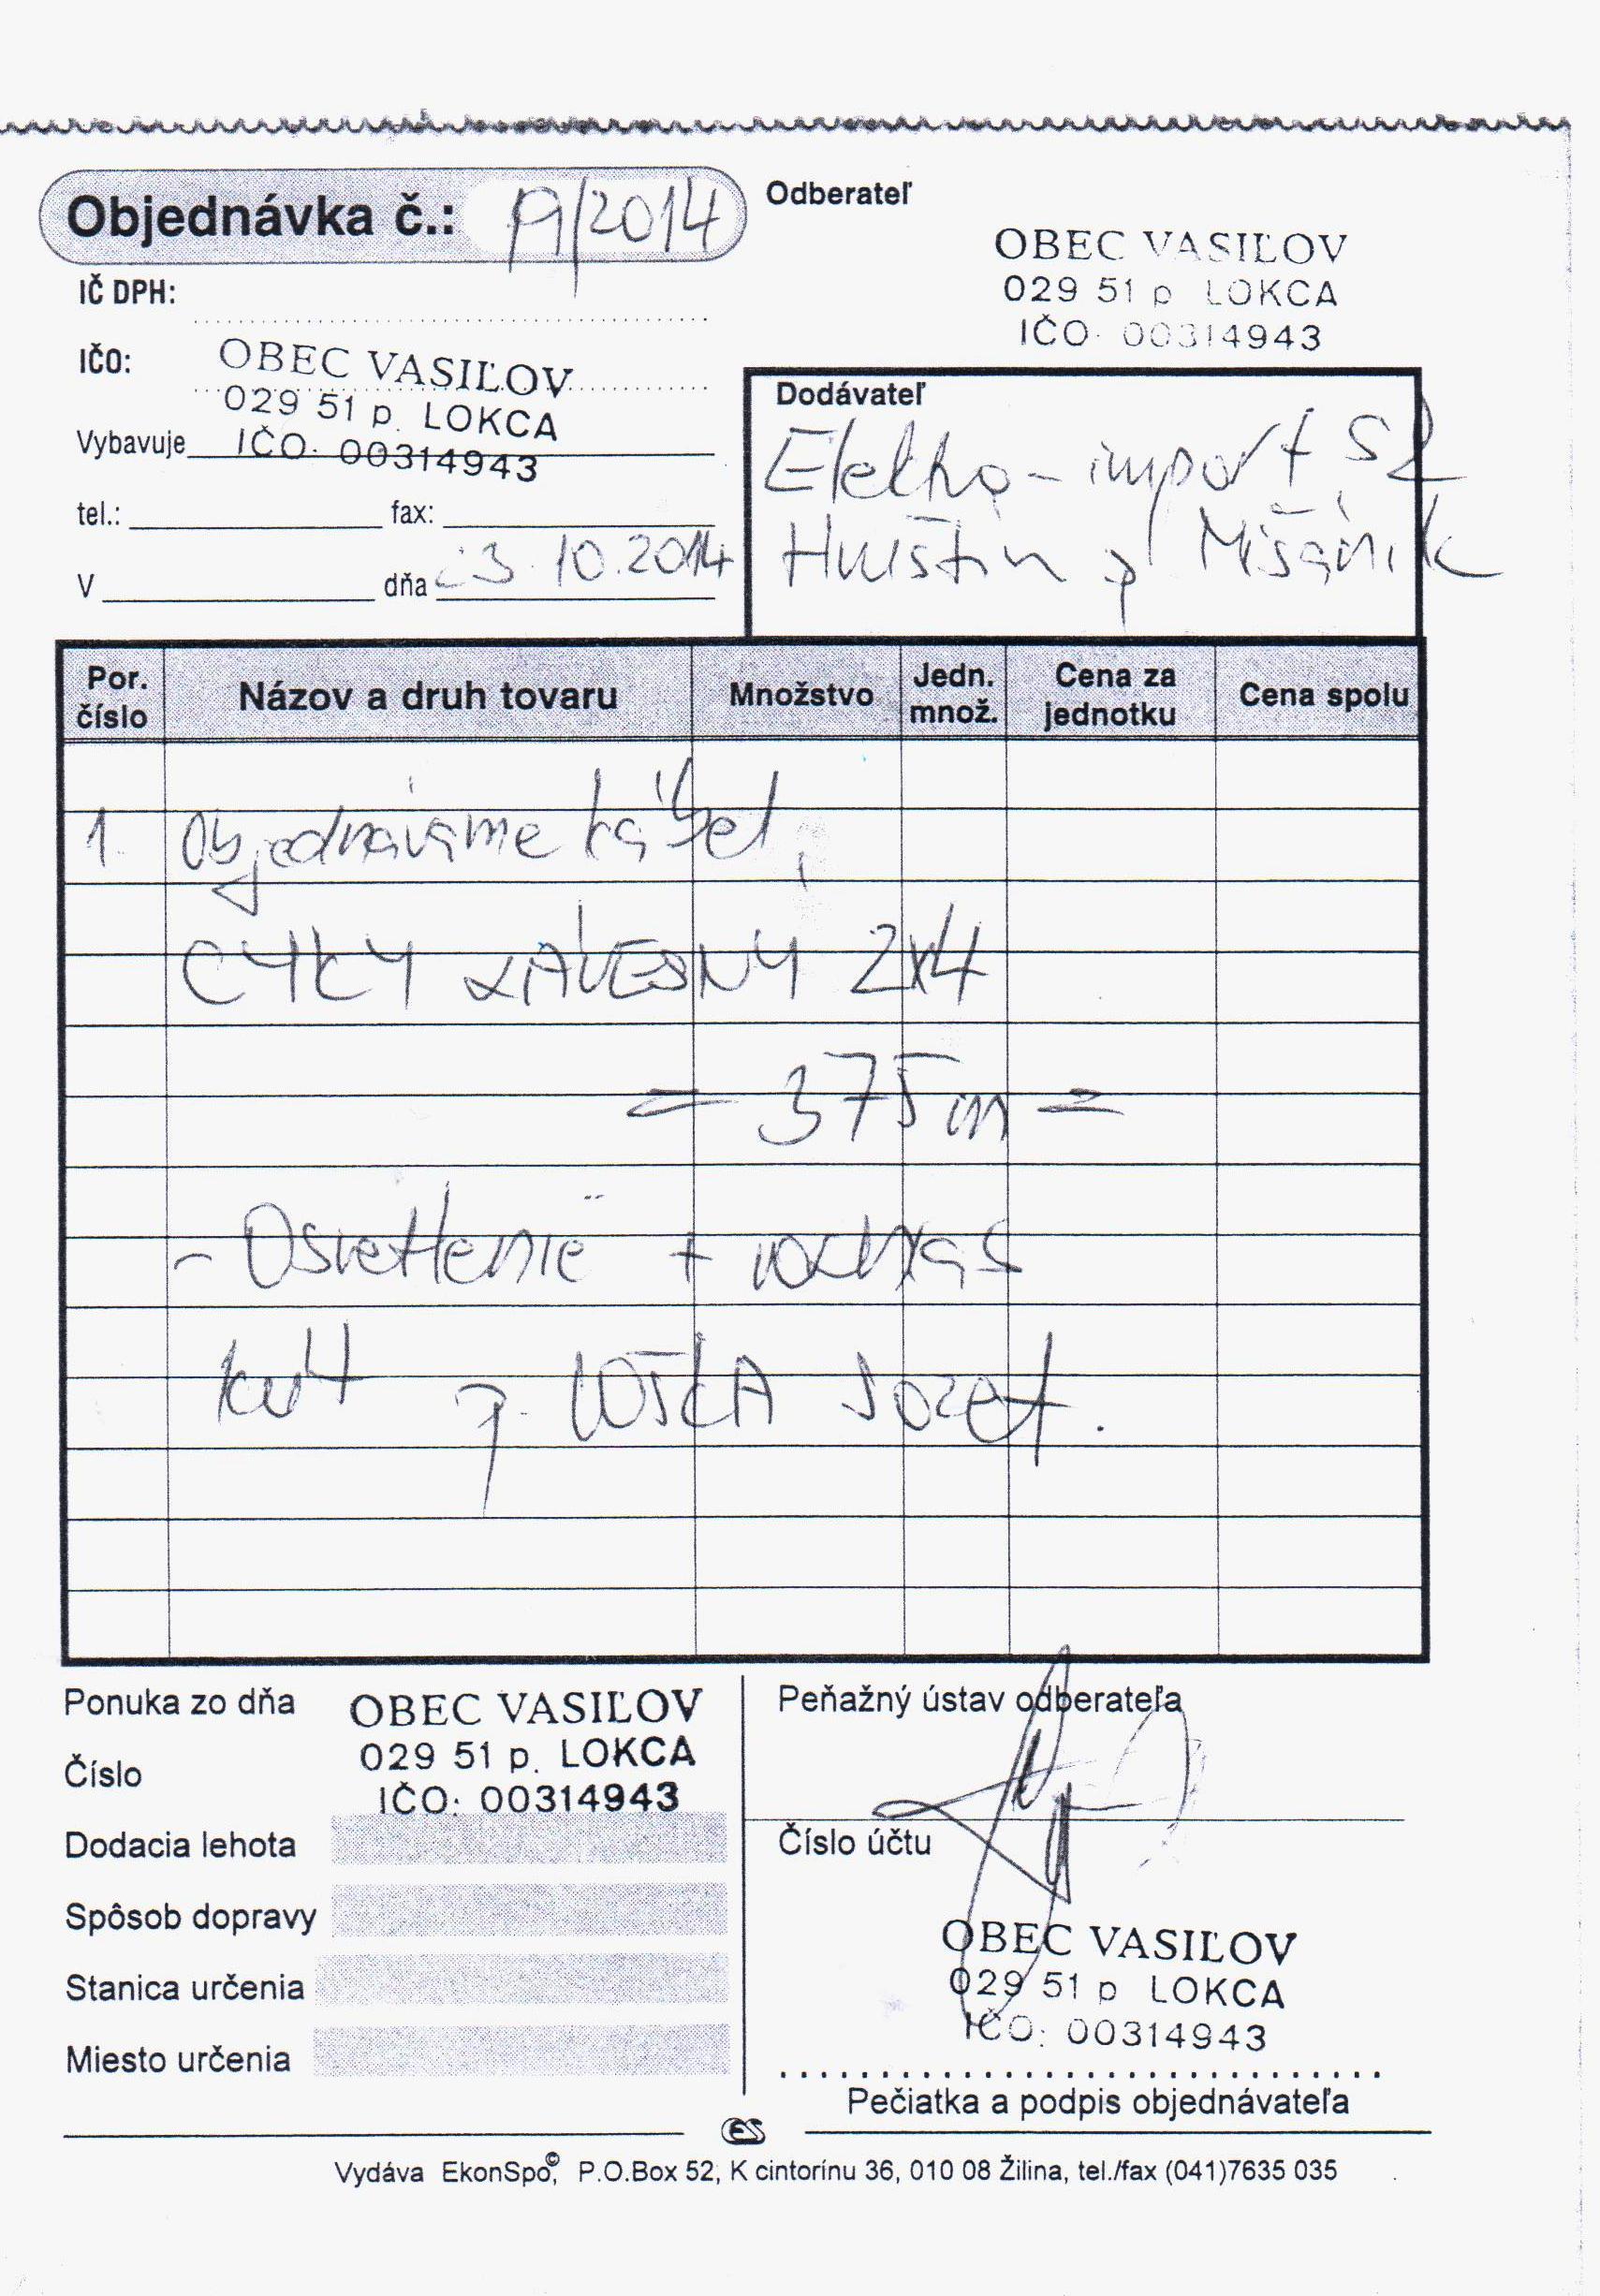 Objednávka č.: 19/2014
IČ DPH:
IČO:
OBEC VASIĽOV
029 51 p. LOKCA
IČO: 00314943
Vybavuje
tel.: fax:
V dňa 23.10.2014
Odberateľ
OBEC VASIĽOV
029 51 p LOKCA
IČO: 00314943
Dodávateľ
Elektro-import
Hruštín p Mišánik
Por. číslo
Názov a druh tovaru
Množstvo
Jedn. množ.
Cena za jednotku
Cena spolu
1. Objednávame kábel,
CYKY ZÁVESNÝ 2x4
= 375 m =
- Osvetlenie + rozhlas
p. Jozef.
Ponuka zo dňa
Číslo
OBEC VASIĽOV
029 51 p. LOKCA
IČO: 00314943
Dodacia lehota
Spôsob dopravy
Stanica určenia
Miesto určenia
Peňažný ústav odberateľa
Číslo účtu
OBEC VASIĽOV
029 51 p LOKCA
IČO: 00314943
Pečiatka a podpis objednávateľa
ES
Vydáva EkonSpo©, P.O.Box 52, K cintorínu 36, 010 08 Žilina, tel./fax (041)7635 035